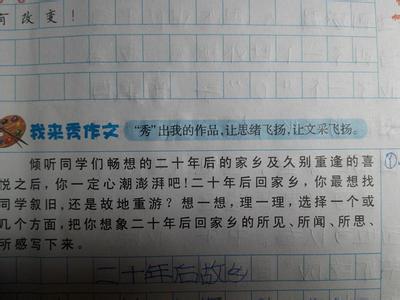 有改变！
我来秀作文 “秀”出我的作品，让思绪飞扬，让文采飞扬。
倾听同学们畅想的二十年后的家乡及久别重逢的喜
悦之后，你一定心潮澎湃吧！二十年后回家乡，你最想找
同学叙旧，还是故地重游？想一想，理一理，选择一个或
几个方面，把你想象二十年后回家乡的所见、所闻、所思、
所感写下来。
二十年后故乡